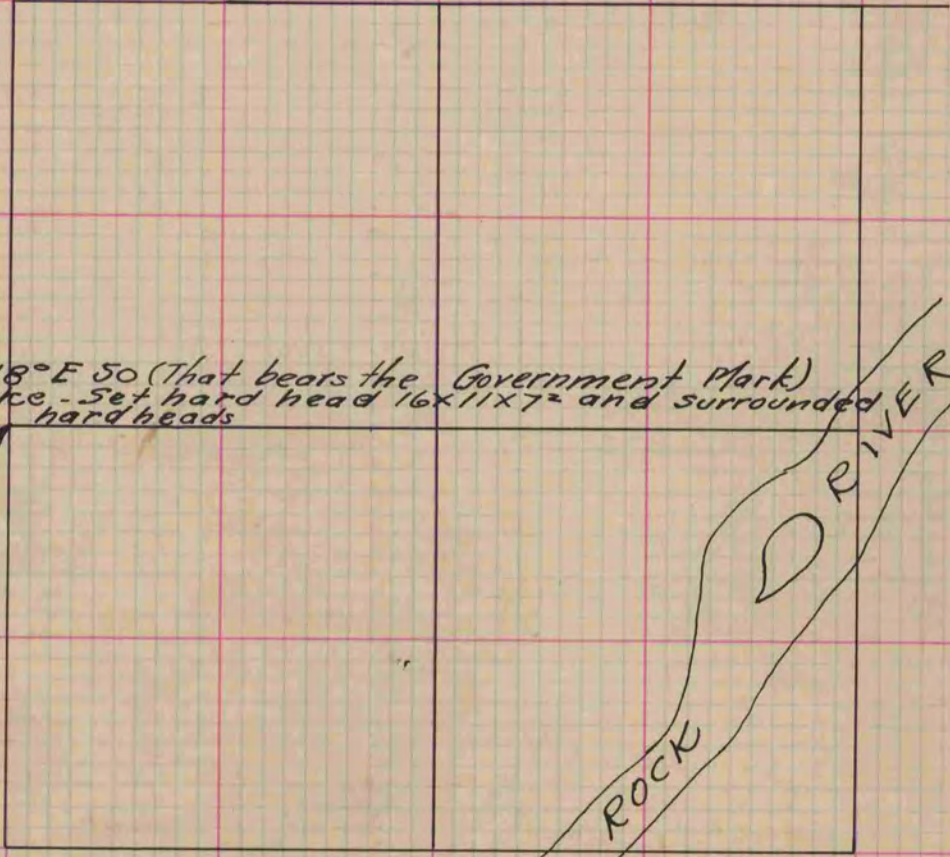 8°E 50 (That bears the Government Mark)
ce - Set hard head 16x11x7² and surrounded
hardheads
ROCK RIVER